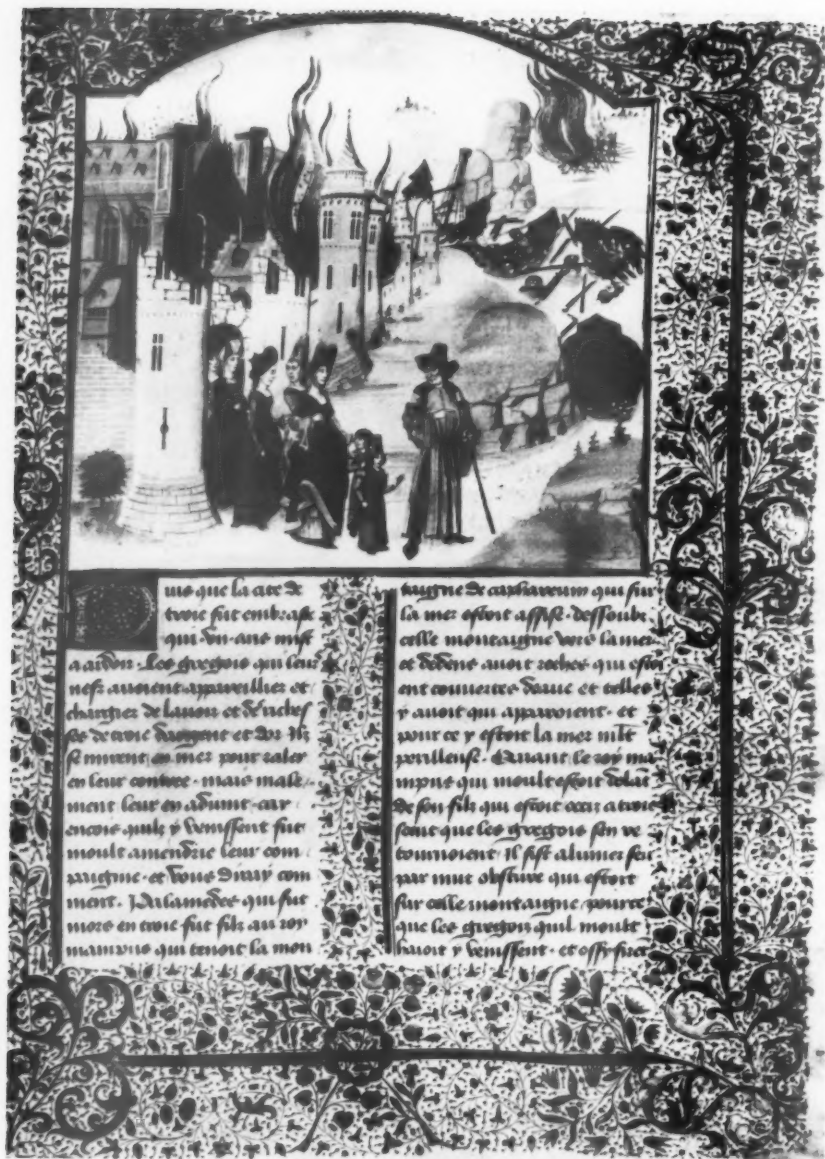 uis que la cite de
troie fut embrasee
qui dun an mist
a ardoir. Les gregois qui leur
nefz auoient appareillier et
chargier de lauoir et de riches
ses de troie dargent et dor Ilz
se mirent en mer pour raler
en leur contree. mais male
ment leur en aduint. car
encois quilz y venissent fut
moult amendrie leur com
paignie. et vous diray com
ment. Palamedes qui fut
mors en troie fut filz au roy
qui tenoit la mon
taigne de qui sur
la mer estoit assise. dessoubz
celle montaigne vers la mer
et dedens auoit roches qui estoi
ent couuertes deaue et telles
y auoit qui apparoient. et
pour ce y estoit la mer mlt
perilleuse. Quant le roy
qui moult estoit
de son filz qui estoit occiz a troie
sceut que les gregois sen re
tournoient Il fist alumer feu
par nuit obscure qui estoit
sur celle montaigne pource
que les gregois quil moult
haioit y venissent. et